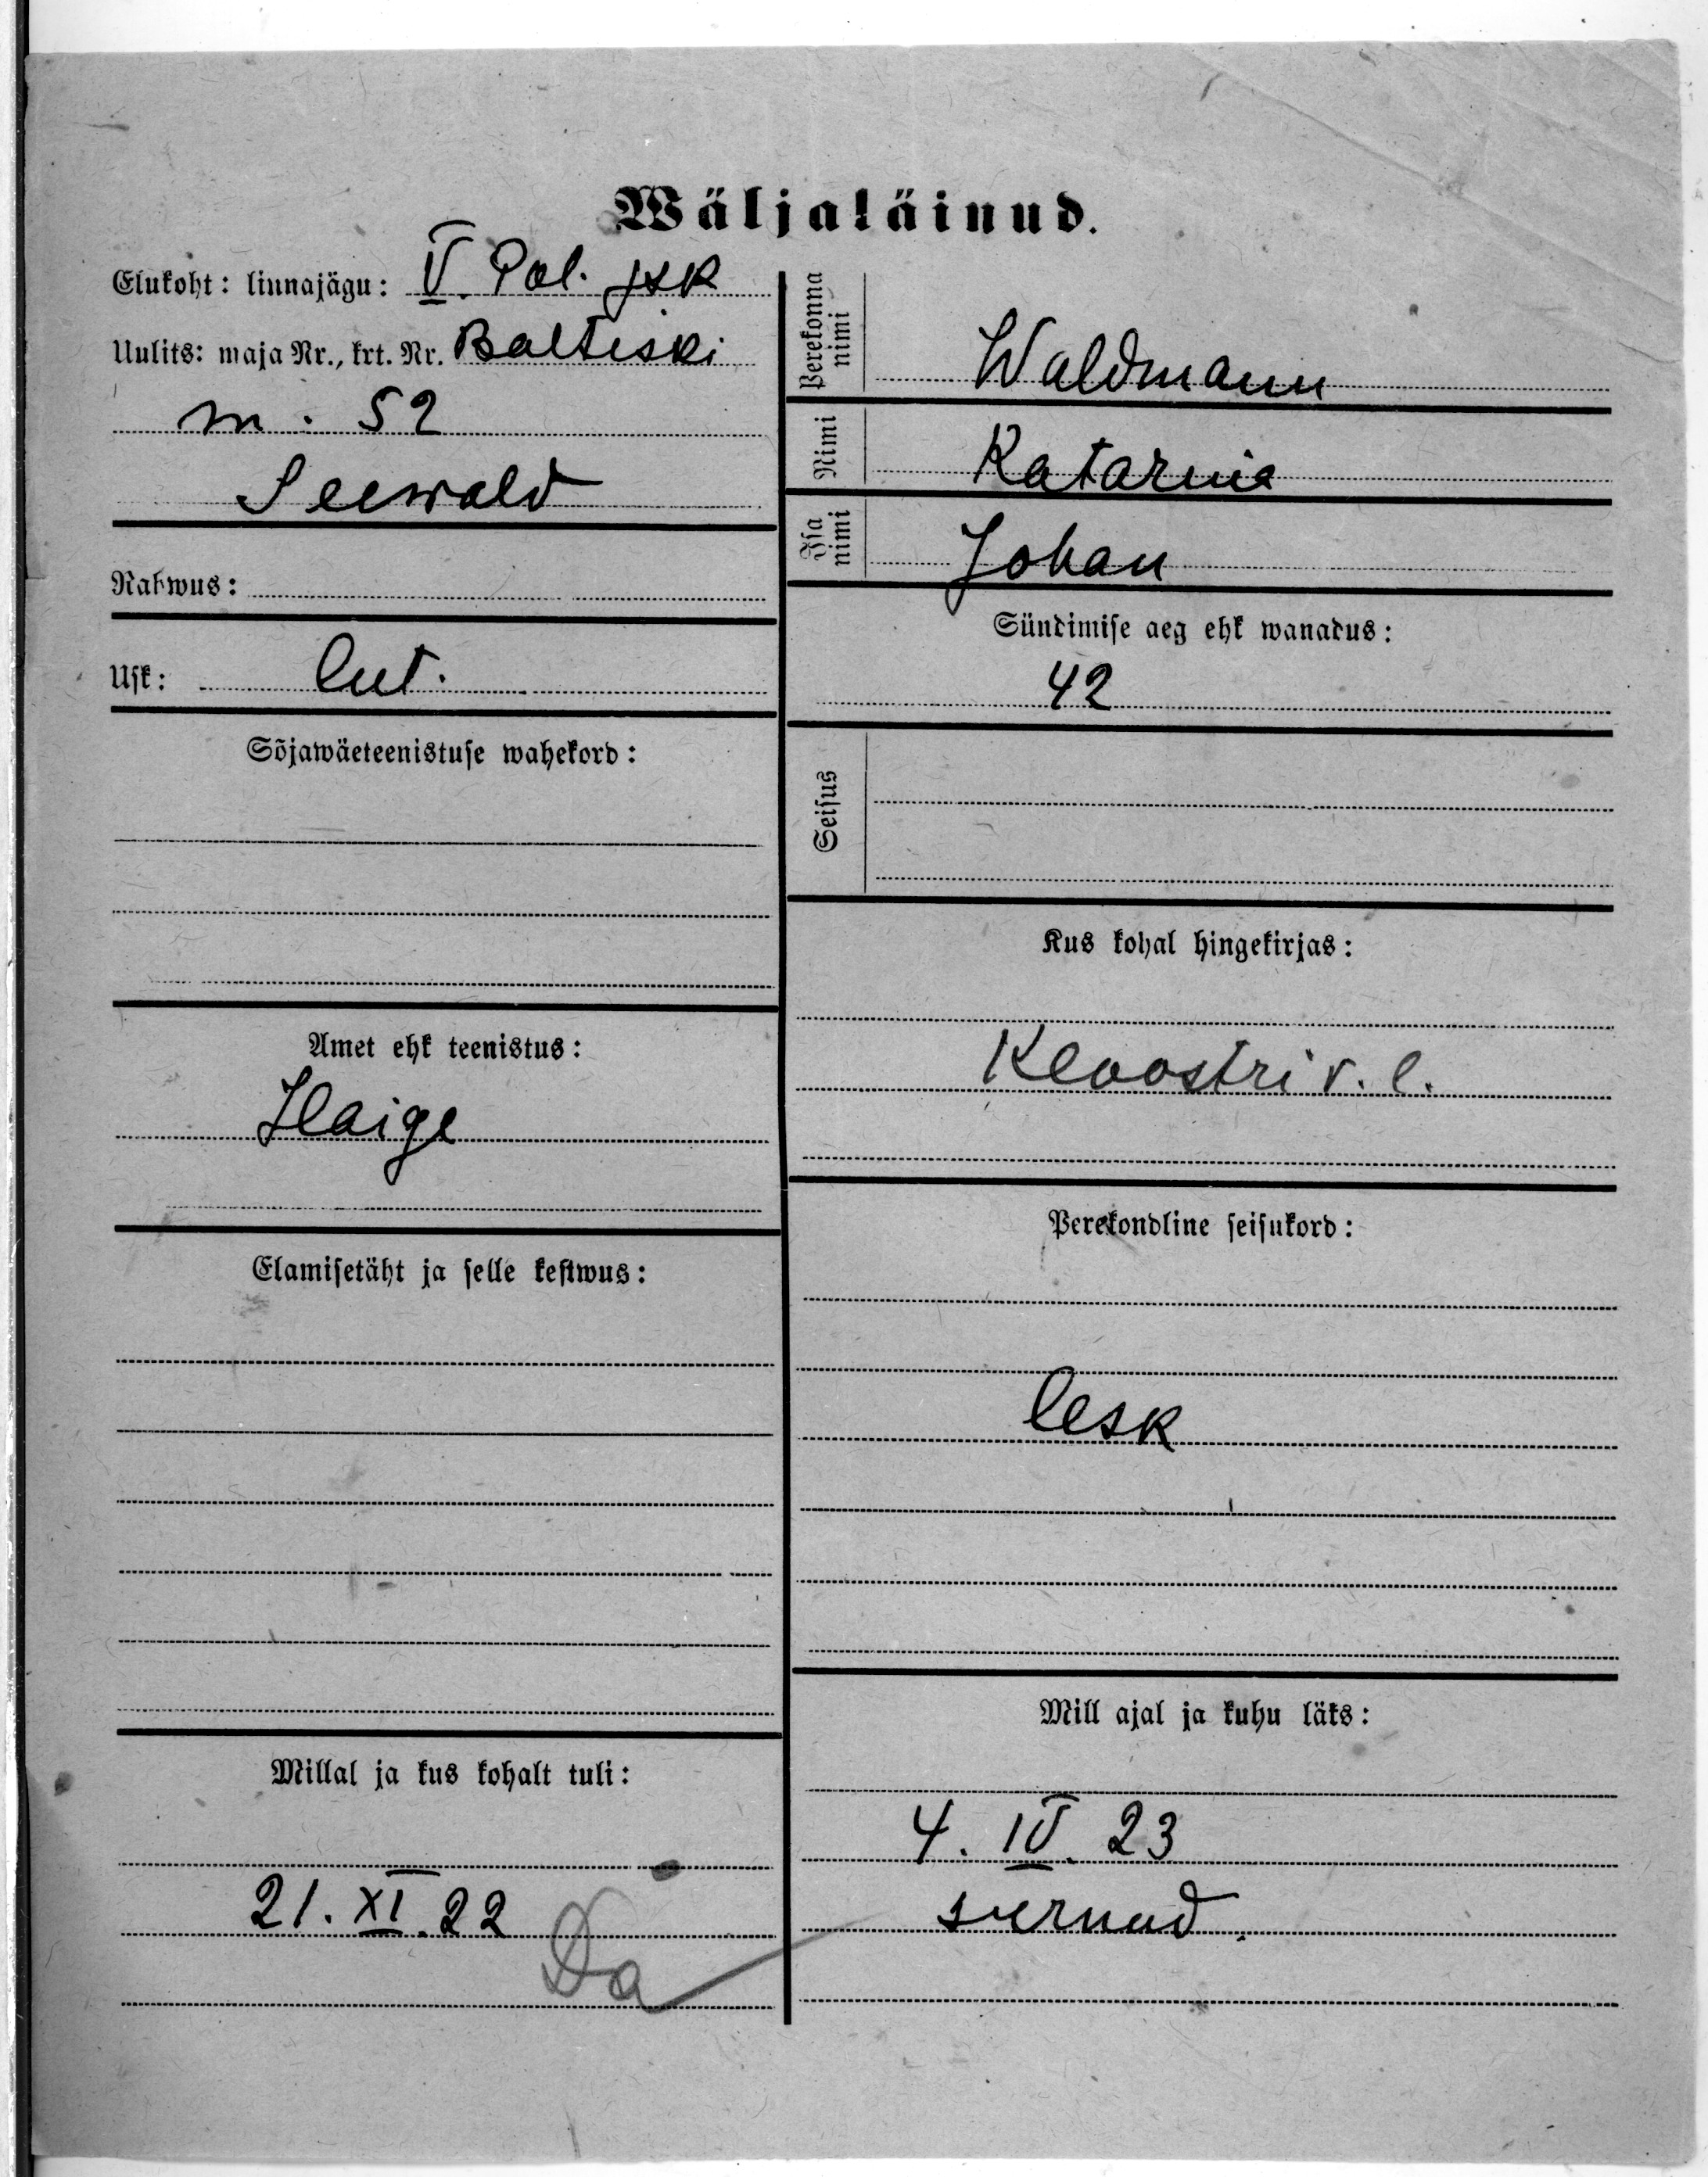 Wäljaläinud.
Elukoht: linnajägu: V. Pol. jsk
Uulits: maja Nr., krt. Nr. Baltiski
m. 52
Seewald
Rahwus:
Usk: lut.
Sõjawäeteenistuse wahekord:
Amet ehk teenistus:
Haige
Elamisetäht ja selle kestwus:
Millal ja kus kohalt tuli:
21. XI. 22
Da
Perekonna nimi Waldmann
Nimi Katarina
Isa nimi Johan
Sündimise aeg ehk wanadus:
42
Seisus
Kus kohal hingekirjas:
Kloostri v. l.
Perekondline seisukord:
lesk
Mill ajal ja kuhu läks:
4. IV. 23
surnud.